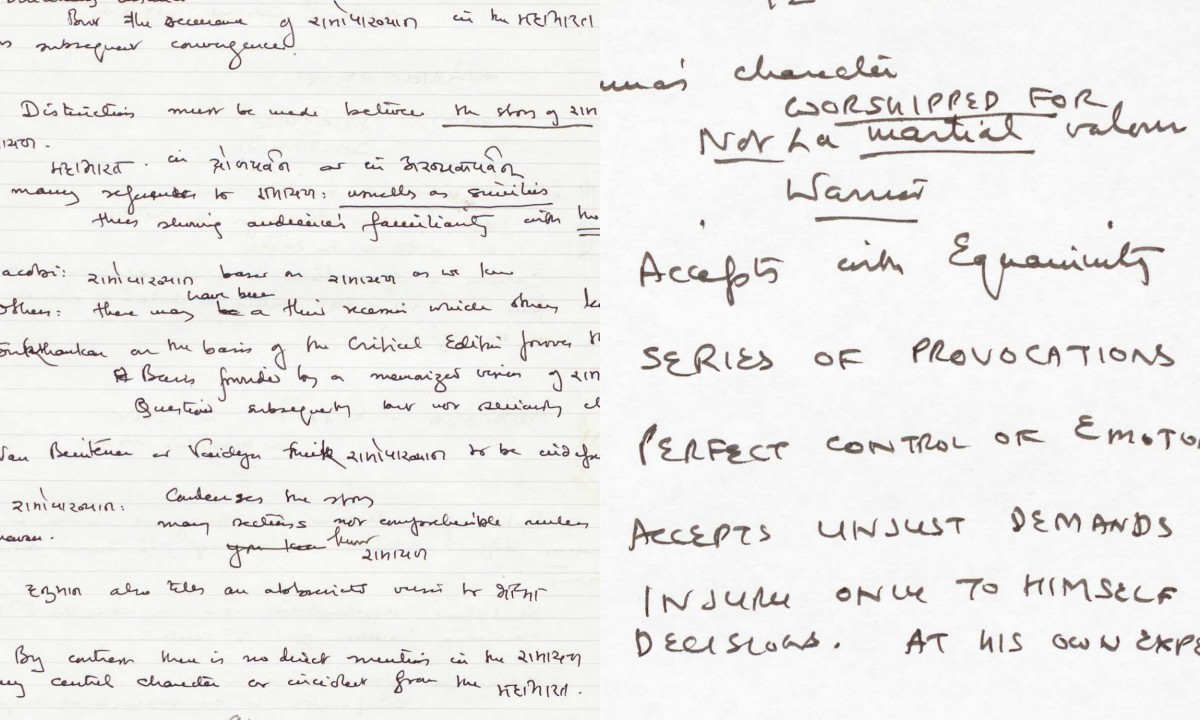 But the occurrence of रामोपाख्यान in the महाभारत
subsequent convergence.
Distinction must be made between the story of राम
महाभारत. in द्रोणपर्वन् or in अरण्यकपर्वन्
many references to रामायण: usually as similies
thus showing audience's familiarity with the
acobi: रामोपाख्यान based on रामायण as we know
have been
others: there may be a third recension which others
Sukthankar on the basis of the Critical Edition proves
Basis provided by a memorized version of राम
Question subsequently but not seriously
Van Buitenen or Vaidya think रामोपाख्यान to be
रामोपाख्यान: Condenses the story
many sections not comprehensible unless
you know
रामायण
हनुमान also tells an abbreviated version to भीम
By contrast there is no direct mention in the रामायण
any central character or incident from the महाभारत.
character
WORSHIPPED FOR
Not martial valour
Warrior
Accepts with Equanimity
SERIES OF PROVOCATIONS
PERFECT CONTROL OF EMOTIO
ACCEPTS UNJUST DEMANDS
INJURE ONLY TO HIMSELF
DECISIONS. AT HIS OWN EXPE